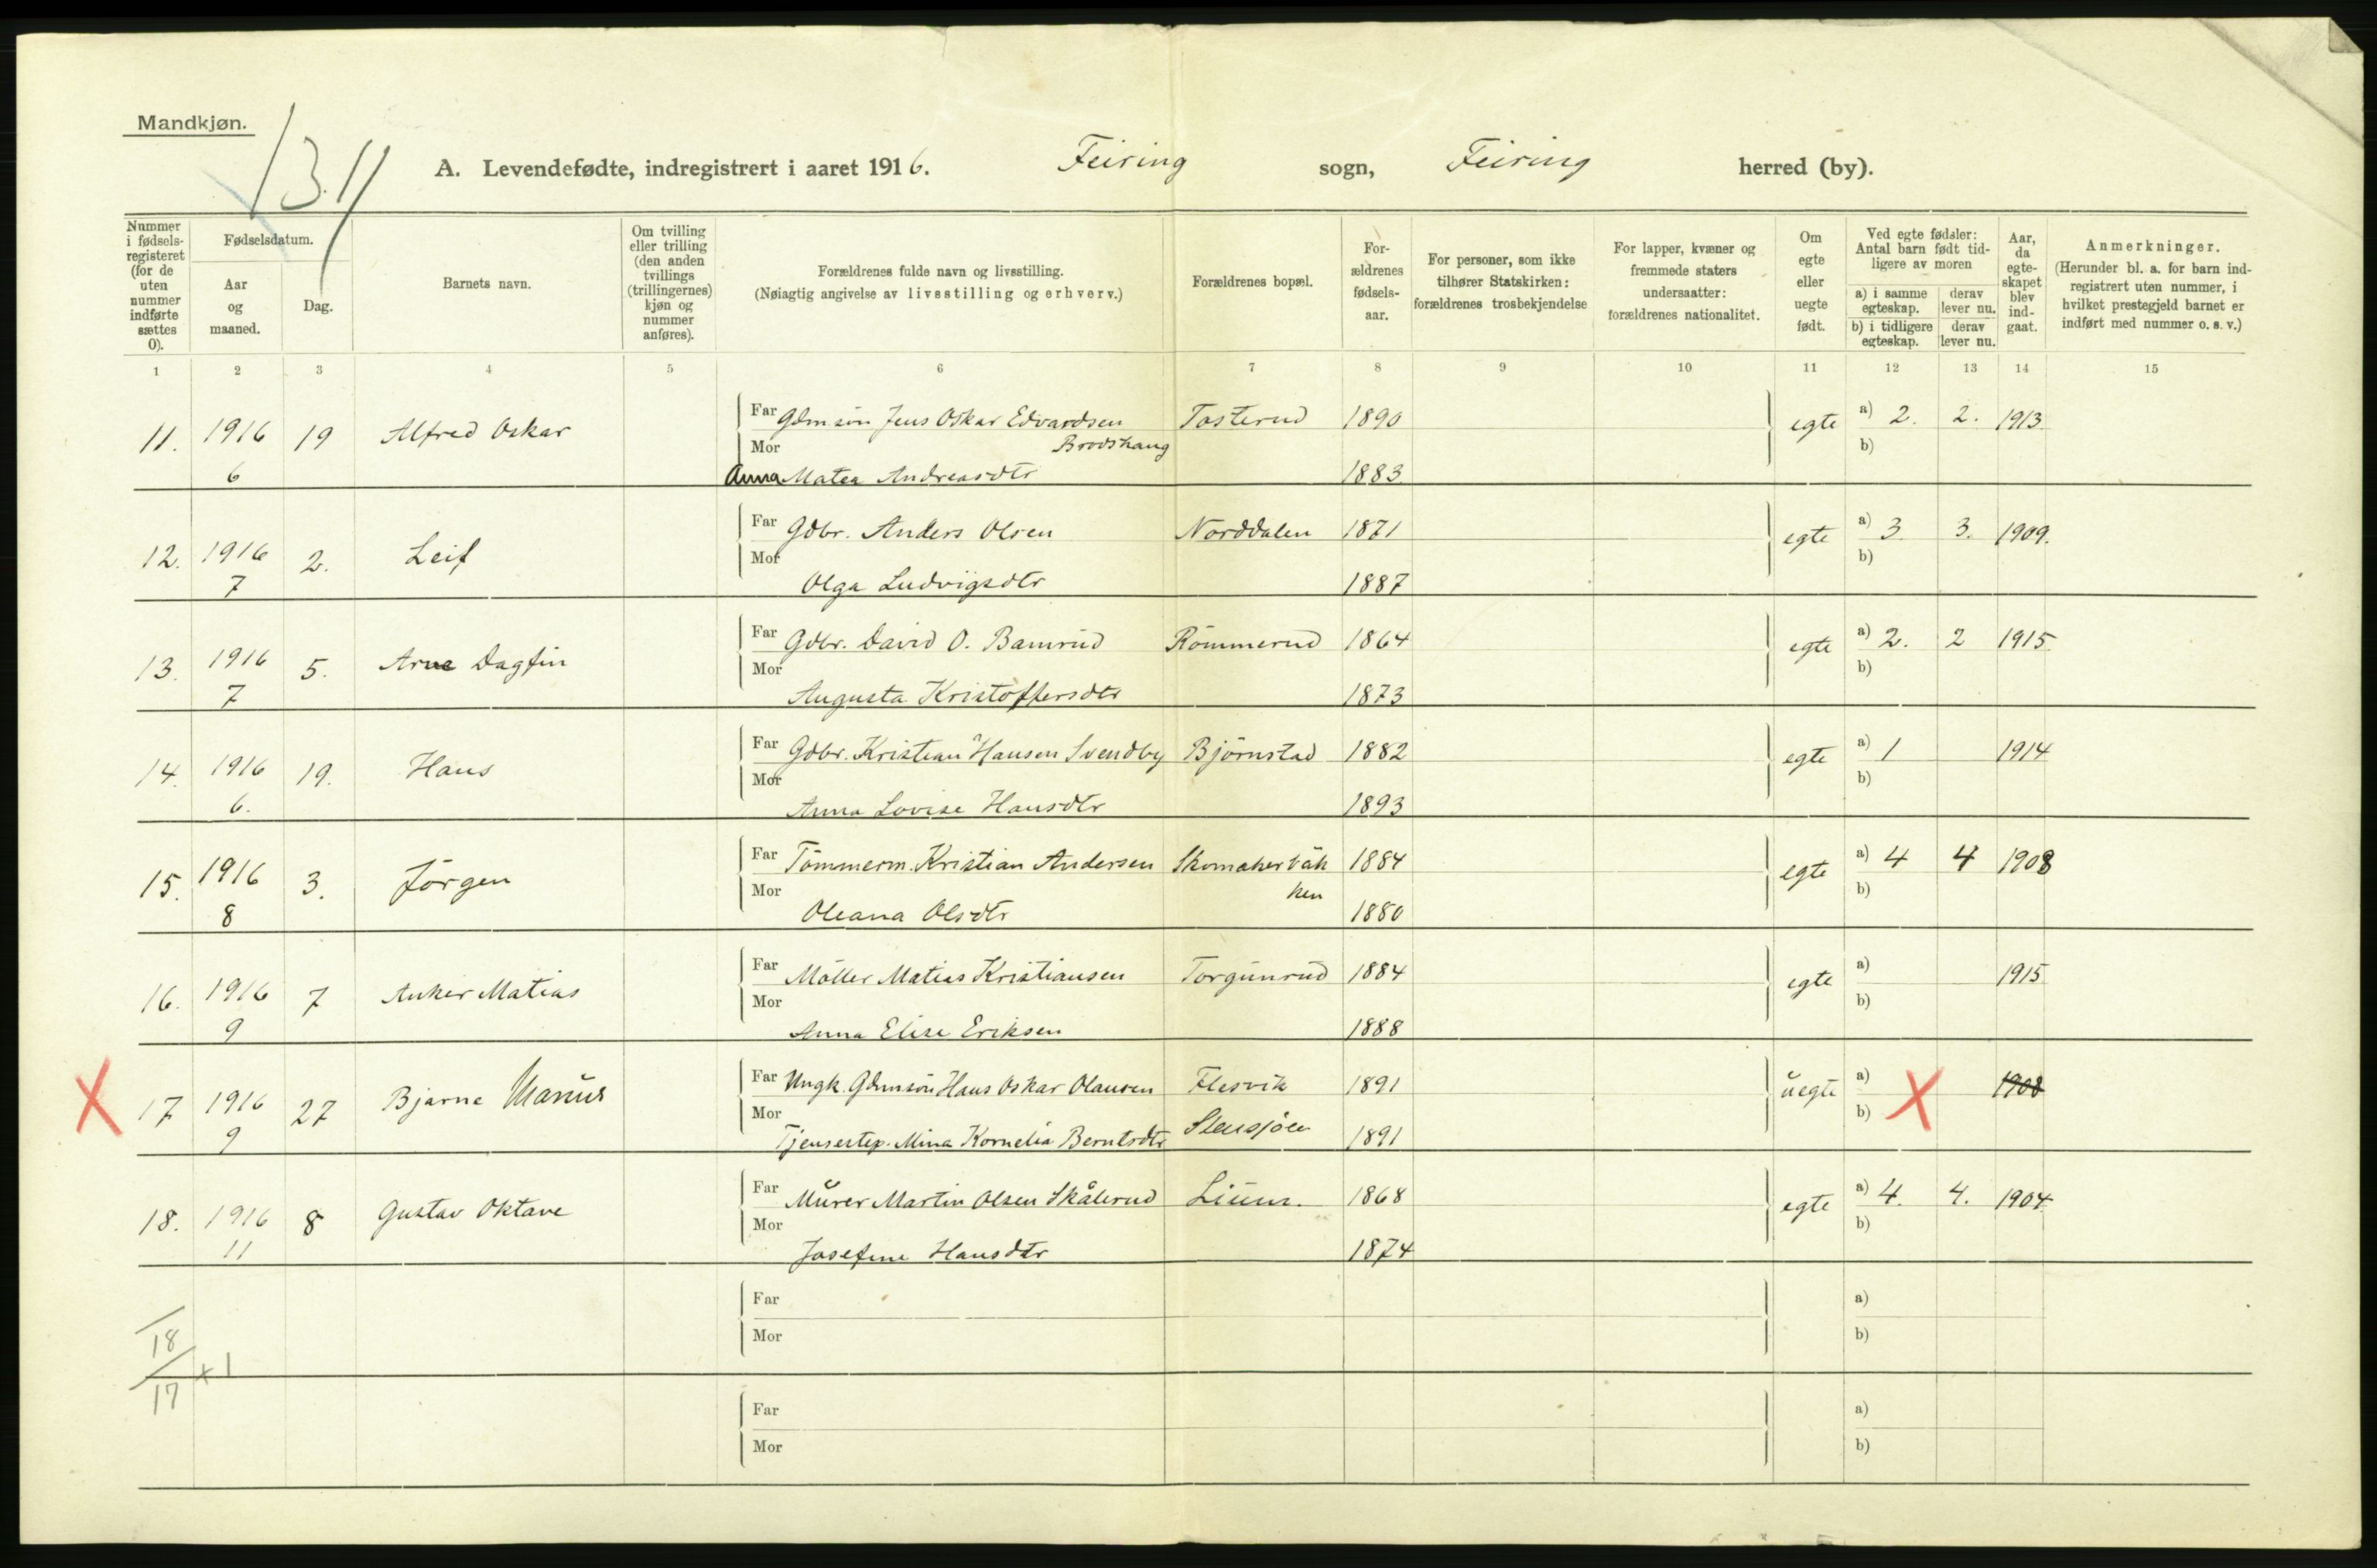 Mandkjøn.
1311
A. Levendefødte, indregistrert i aaret 1916. Feiring sogn, Feiring herred (by).
Nummer i fødsels-registeret (for de uten nummer indførte sættes 0).
Fødselsdatum.
Aar og maaned.
Dag.
Barnets navn.
Om tvilling eller trilling (den anden tvillings (trillingernes) kjøn og nummer anføres).
Forældrenes fulde navn og livsstilling.
(Nøiagtig angivelse av livsstilling og erhverv.)
Forældrenes bopæl.
For-ældrenes fødsels-aar.
For personer, som ikke tilhører Statskirken: forældrenes trosbekjendelse
For lapper, kvæner og fremmede staters undersaatter: forældrenes nationalitet.
Om egte eller uegte født.
Ved egte fødsler: Antal barn født tid-ligere av moren
a) i samme egteskap. derav lever nu.
b) i tidligere egteskap. derav lever nu.
Aar, da egte-skapet blev ind-gaat.
Anmerkninger.
(Herunder bl. a. for barn ind-registrert uten nummer, i hvilket prestegjeld barnet er indført med nummer o. s. v.)
1 2 3 4 5 6 7 8 9 10 11 12 13 14 15
11. 1916 6 19 Alfred Oskar Far Gdmsøn Jens Oskar Edvardsen Brodshaug Tosterud 1890 egte a) 2. 2. 1913
Mor Anna Matea Andreasdtr 1883 b)
12. 1916 7 2. Leif Far Gdbr. Anders Olsen Norddalen 1871 egte a) 3. 3. 1909.
Mor Olga Ludvigsdtr 1887 b)
13. 1916 7 5. Arne Dagfin Far Gdbr. David O. Bamrud Römmerud 1864 egte a) 2. 2 1915
Mor Augusta Kristoffersdtr 1873 b)
14. 1916 6. 19. Hans Far Gdbr. Kristian Hansen Svendby Björnstad 1882 egte a) 1 1914
Mor Anna Lovise Hansdtr 1893 b)
15. 1916 8 3. Jörgen Far Tömmerm. Kristian Andersen Skomakerbäkken 1884 egte a) 4 4 1908
Mor Oleana Olsdtr 1880 b)
16. 1916 9 7 Anker Matias Far Möller Matias Kristiansen Torgunrud 1884 egte a) 1915
Mor Anna Elise Eriksen 1888 b)
X 17 1916 9 27 Bjarne Marius Far Ungk. Gdmsön Hans Oskar Olausen Flesvik 1891 uegte a) X 1908
Mor Tjenestep. Mina Kornelia Berntsdtr Stensjöen 1891 b)
18. 1916 11 8 Gustav Oktave Far Murer Martin Olsen Skålerud 1868 egte a) 4. 4. 1904
Mor Josefine Hansdtr 1874 b)
Far a)
Mor b)
18
17 x 1
Far a)
Mor b)